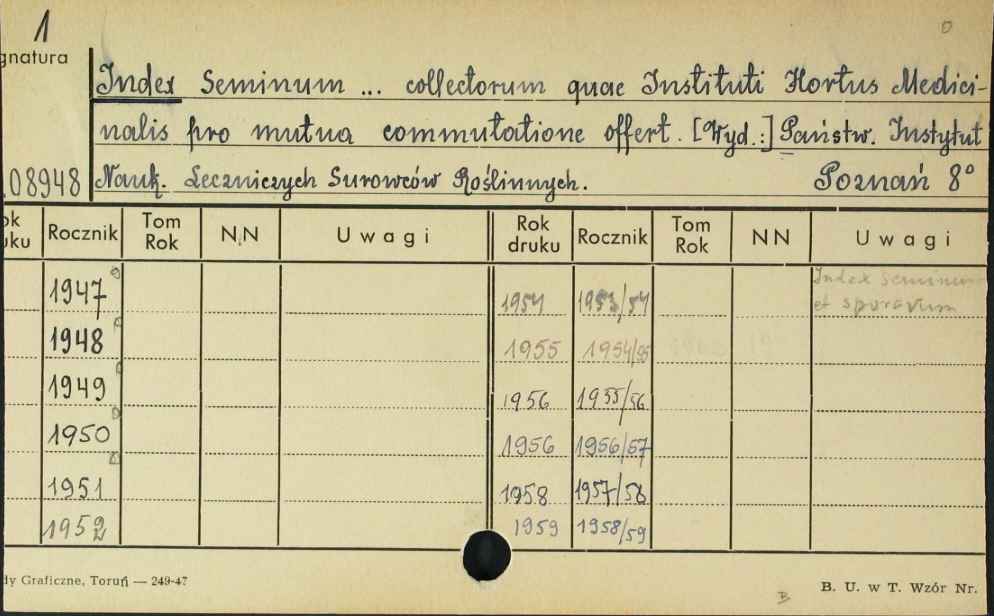 1
gnatura
Index Seminum ... collectorum quae Instituti Hortus Medici-
nalis pro mutua commutatione offert. [Wyd.:] Państw. Instytut
08948 Nauk. Leczniczych Surowców Roślinnych. Poznań 8°
ok druku Rocznik Tom Rok NN Uwagi Rok druku Rocznik Tom Rok NN Uwagi
1947 1954 1953/54 Index seminum et sporarum
1948 1955 1954/55
1949 1956 1955/56
1950 1956 1956/57
1951 1958 1957/58
1952 1959 1958/59
dy Graficzne, Toruń — 249-47 B. U. w T. Wzór Nr.
B